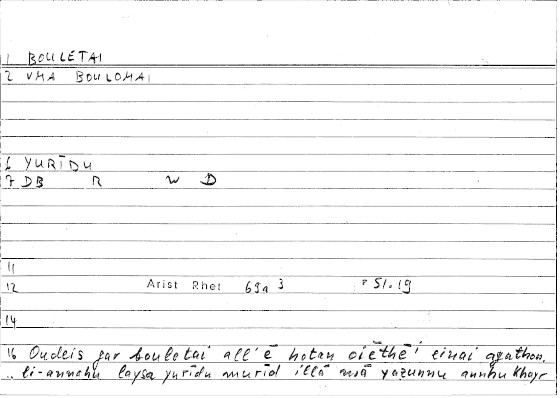 1 BOULETAI
2 VMA BOULOMAI
6 YURĪDU
7 DB R W D
11
12 Arist Rhet 69a 3 51.19
14
16 Oudeis gar bouletai all' ē hotan oiēthē' einai agathon.
.. li-annahu laysa yurīdu murīd illā mā yaẓunnu annhu khayr